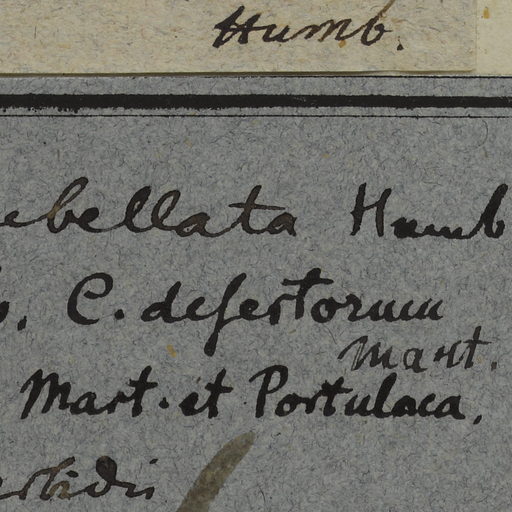 Humb.
ebellata Humb
C. desertorum
Mart.
Mart. et Portulaca.